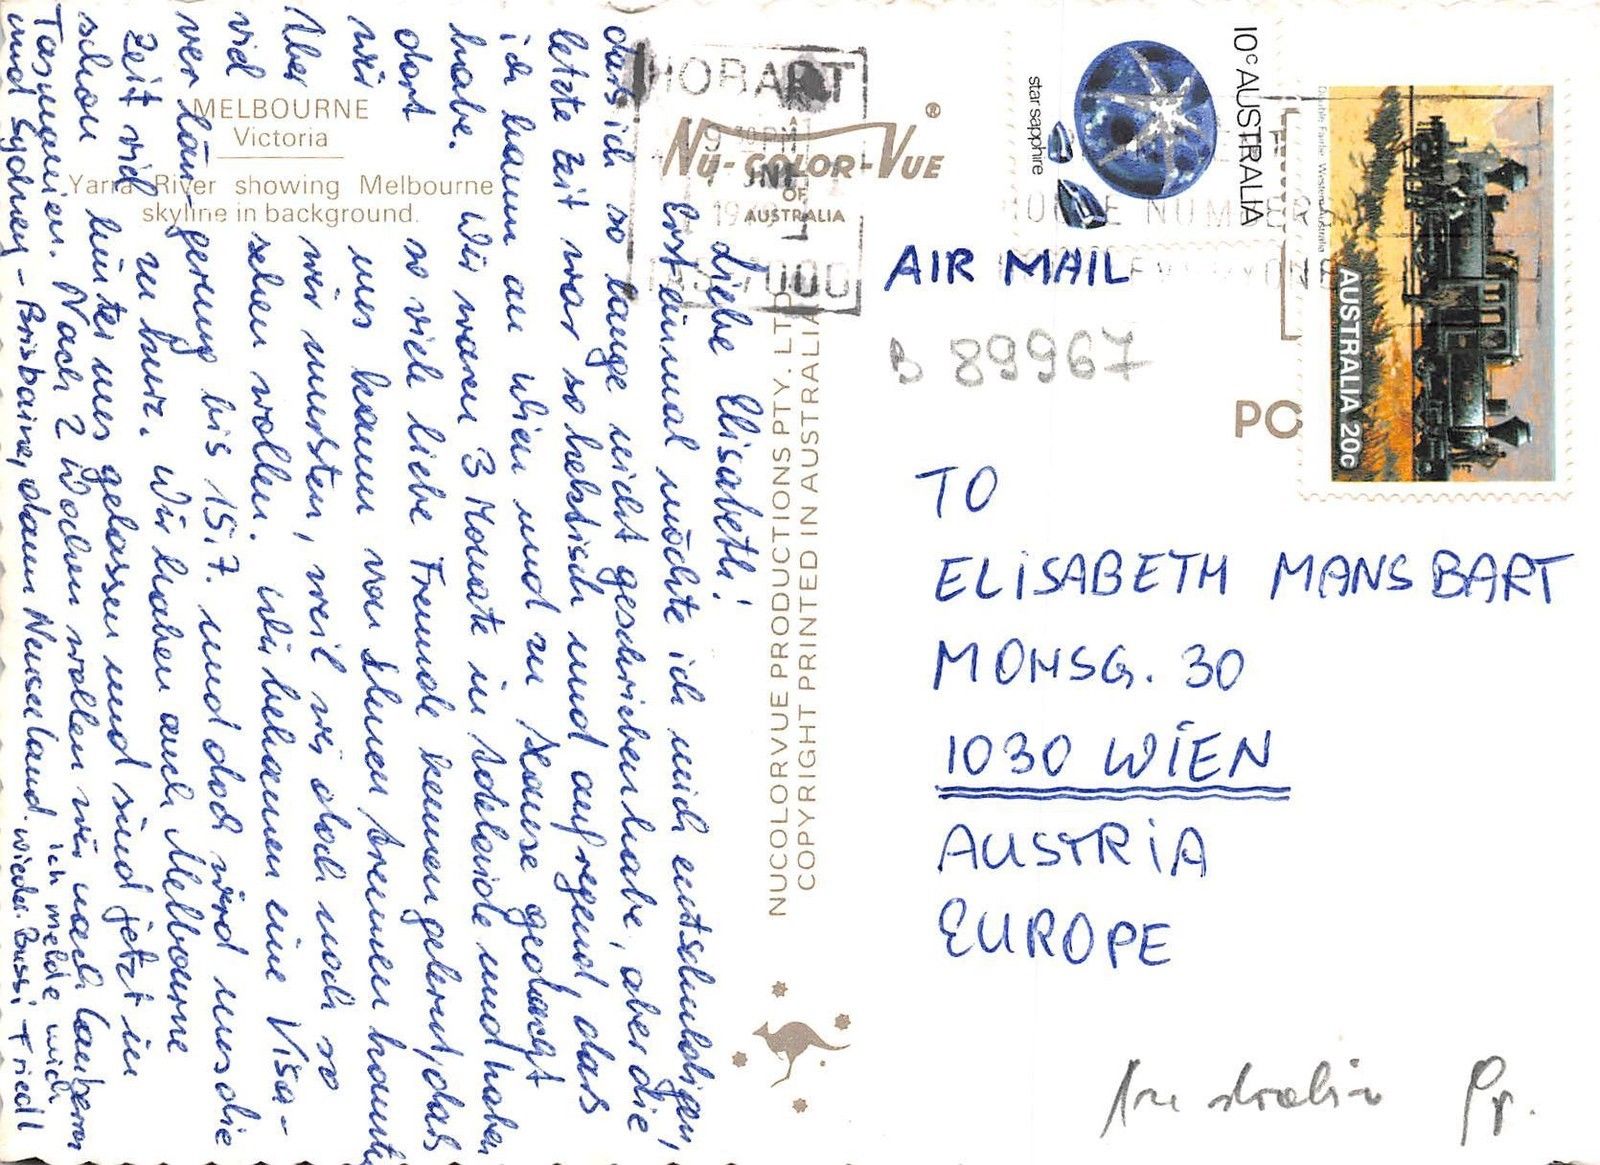 Liebe Elisabeth!
Erst einmal möchte ich mich entschuldigen,
daß ich so lange nicht geschrieben habe, aber die
letzte Zeit war so hektisch und aufregend, das
ich kaum an Wien und zu Hause gedacht
habe. Wir waren 3 Monate in Adelaide und haben
dort so viele liebe Freunde kennengelernt, das
wir uns kaum von Ihnen trennen konnten
Aber wir mussten, weil wir doch noch so
viel sehen wollen. Wir bekamen eine Visa-
verlängerung bis 15.7. und doch wird uns die
Zeit viel zu kurz. Wir haben auch Melbourne
schon hinter uns gelassen und sind jetzt in
Tasmanien. Nach 2 Wochen wollen wir nach Canberra
und Sydney - Brisbaine, dann Neuseeland.
ich melde mich
wieder. Bussi Friedl
MELBOURNE
Victoria
Yarra River showing Melbourne
skyline in background.
NU-COLOR-VUE ®
OF
AUSTRALIA
NUCOLORVUE PRODUCTIONS PTY. LTD.
COPYRIGHT PRINTED IN AUSTRALIA
HOBART
9 30 PM
JNE
TAS 7000
10c AUSTRALIA
star sapphire
AUSTRALIA 20c
Double Fairlie Western Australia
PO
AIR MAIL
B 89967
TO
ELISABETH MANSBART
MOHSG. 30
1030 WIEN
AUSTRIA
EUROPE
Australia